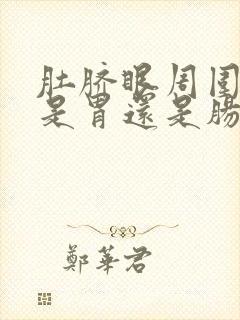 肚脐眼周围
是胃還是腸
鄭華君